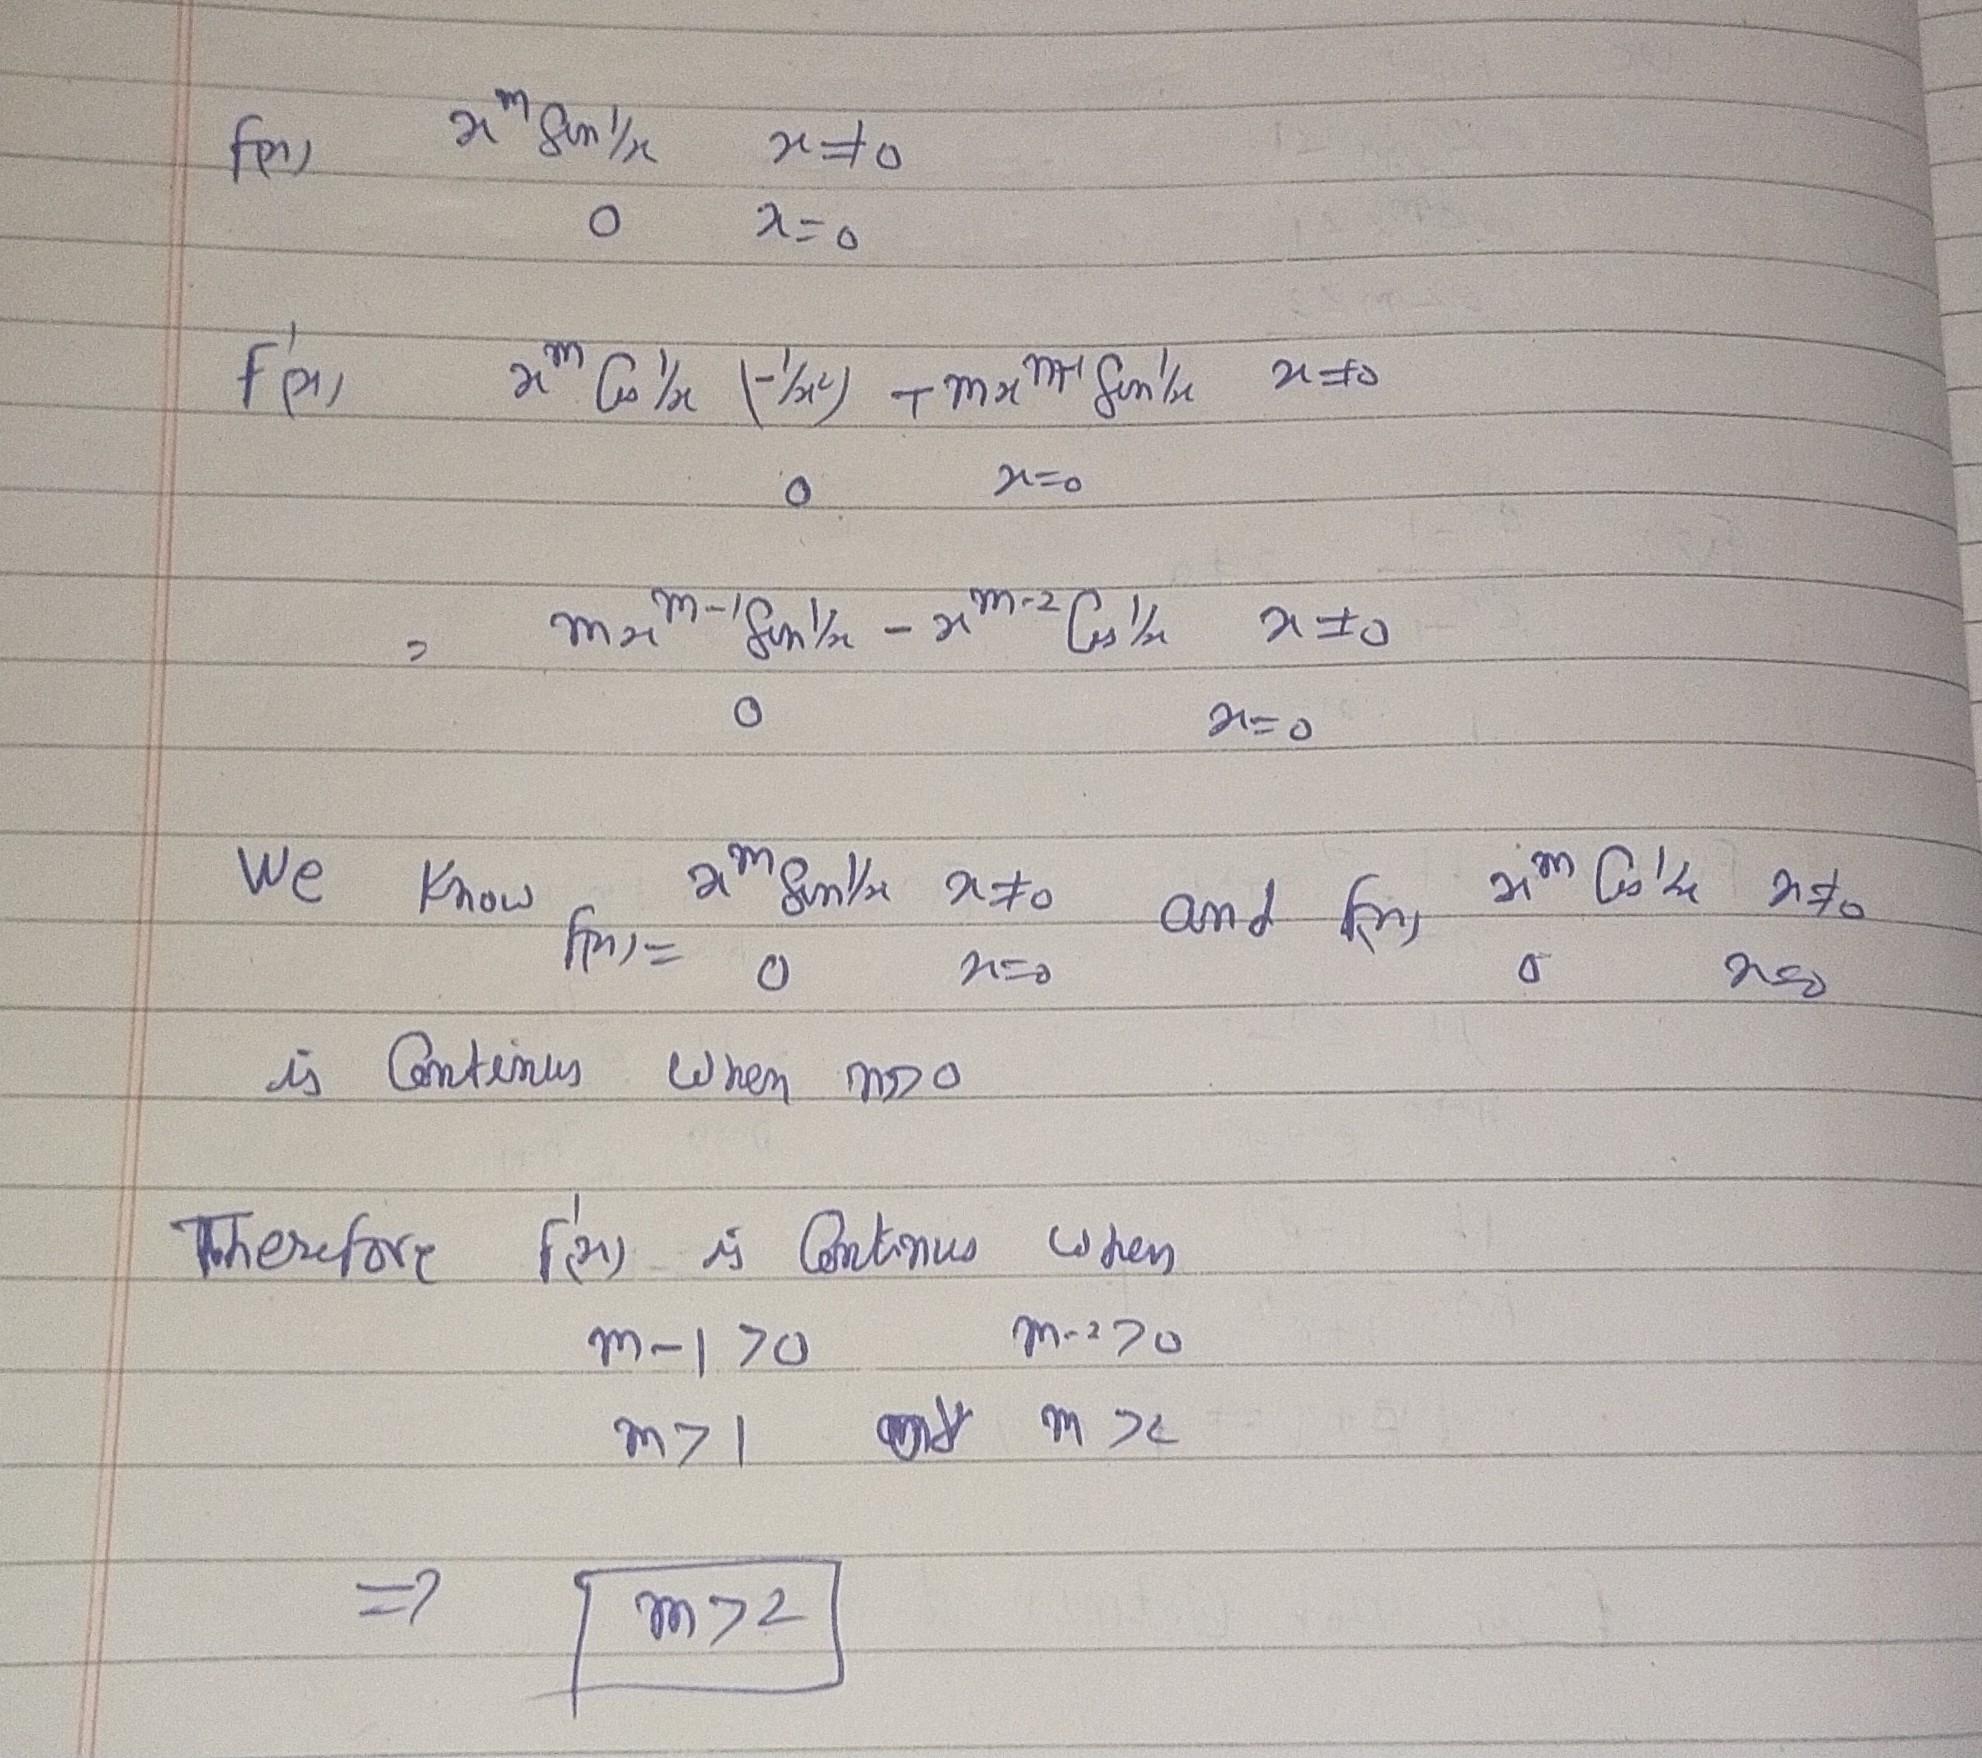 f(x) x^m Sin 1/x x≠0
0 x=0
f'(x) x^m Cos 1/x (-1/x²) + mx^m-1 Sin 1/x x≠0
0 x=0
= mx^m-1 Sin 1/x - x^m-2 Cos 1/x x≠0
0 x=0
We Know f(x) = x^m Sin 1/x x≠0 and f(x) x^m Cos 1/x x≠0
0 x=0 0 x=0
is Continus when m>0
Therefore f'(x) is Continus when
m-1>0 m-2>0
m>1 and m>2
=> m>2